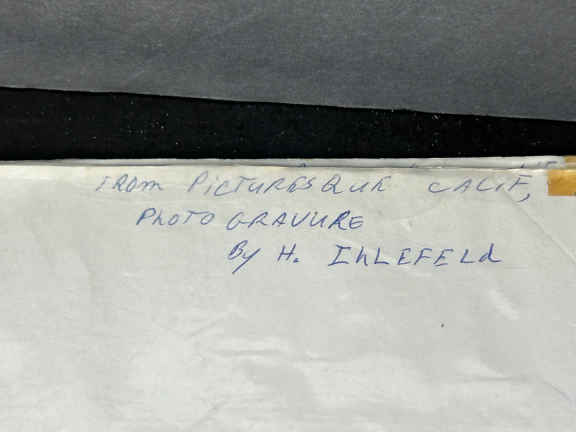 FROM PICTURESQUE CALIF,
PHOTO GRAVURE
By H. IhLEFELd